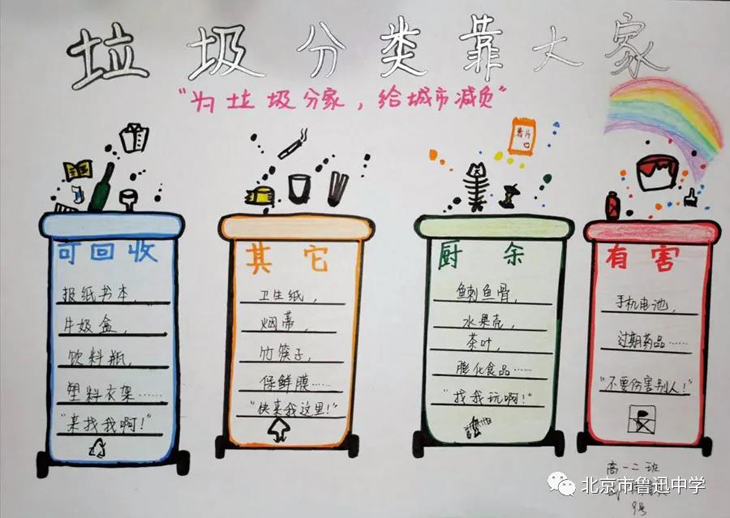 垃圾分类靠大家
"为垃圾分家，给城市减负"
薯片
可回收
报纸书本，
牛奶盒，
饮料瓶，
塑料衣架……
"来找我啊！"
其它
卫生纸，
烟蒂，
竹筷子，
保鲜膜……
"快来我这里！"
厨余
鱼刺鱼骨，
水果壳，
茶叶，
膨化食品……
"找我玩啊！"
有害
手机电池，
过期药品……
"不要伤害别人！"
高一二班
9号
北京市鲁迅中学